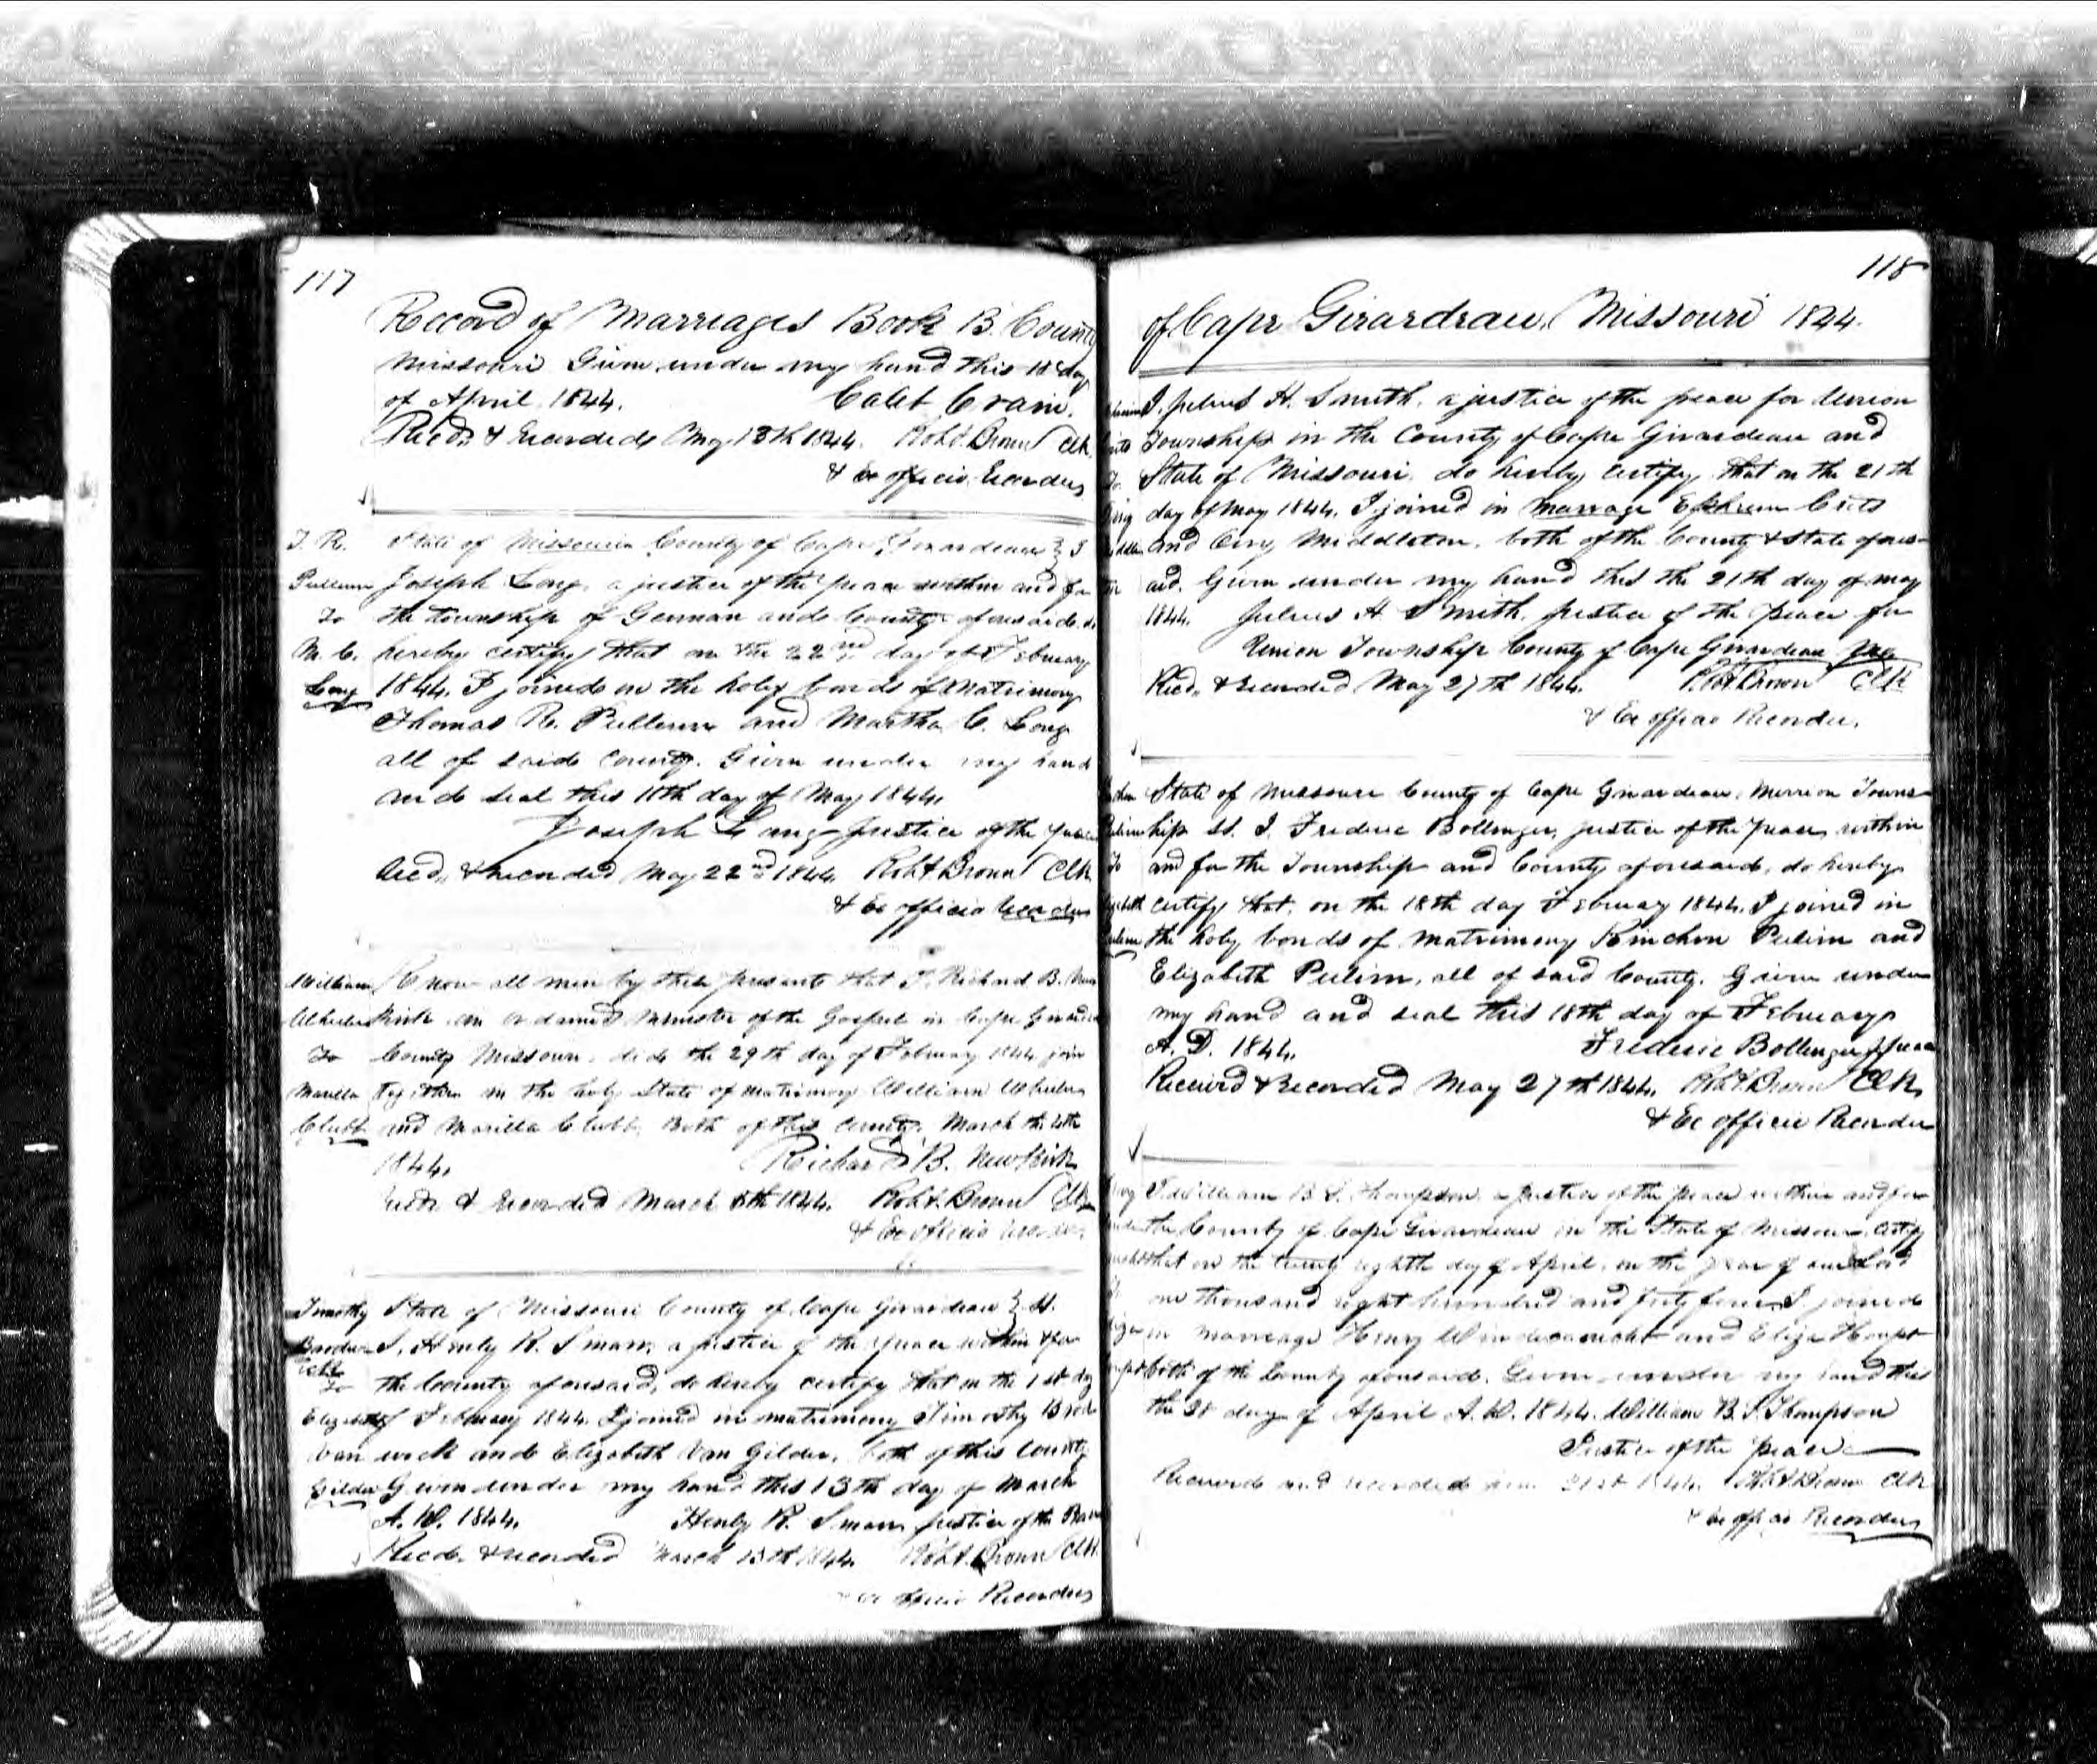 117
Record of Marriages Book B. County
Missouri Given under my hand this 18 day
of April 1844. Caleb Crain.
Recd. & Recorded May 13th 1844. Robt. Brown Clk.
& Ex officio Recorder
T. R. State of Missouri County of Cape Girardeau } I
Pullum Joseph Long, a justice of the peace within and for
To the township of German and County aforesaid do
M. C. hereby certify that on the 22nd day of February
Long 1844. I joined in the holy bonds of matrimony
Thomas R. Pullum and Martha C. Long
all of said County. Given under my hand
and seal this 11th day of May 1844.
Joseph Long Justice of the peace
Recd. & recorded May 22nd 1844. Robt. Brown Clk
& Ex officio Recorder
William Know all men by these presents that I, Richard B. New
Wheeler kirk an ordained minister of the Gospel in Cape Girardeau
To County Missouri. did the 29th day of February 1844 join
Marilla together in the holy State of matrimony William Wheeler
Clubb and Marilla Clubb, Both of this County. March the 4th
1844. Richard B. Newkirk
Recd. & recorded March 8th 1844. Robt. Brown Clk
& Ex officio Recorder
Timothy State of Missouri County of Cape Girardeau } St.
I, Henly R. a justice of the peace within & for
To the County aforesaid, do hereby certify that on the 1st day
Elizabeth of February 1844. I joined in matrimony Timothy
Van and Elizabeth Van Gilder, both of this County
Gilder Given under my hand this 13th day of March
A. D. 1844. Henly R. justice of the Peace
Recd. & recorded March 13th 1844. Robt. Brown Clk.
& ex officio Recorder
118
of Cape Girardeau, Missouri 1844.
I. Julius H. Smith, a justice of the peace for Union
Township in the County of Cape Girardeau and
To State of Missouri, do hereby certify that on the 21th
day of May 1844. I joined in marrage Ephraim
and Middleton, both of the County & State afores-
aid. Given under my hand this the 21th day of may
1844. Julius H. Smith, justice of the peace for
Union Township County of Cape Girardeau
Recd. & recorded May 27th 1844. Robt. Brown Clk
& Ex officio Recorder.
State of Missouri County of Cape Girardeau, Towns-
hip St. I, Frederic Bollinger, justice of the peace, within
To and for the Township and County aforesaid, do hereby
certify that, on the 18th day February 1844. I joined in
the holy bonds of matrimony Kinchen Pulim and
Elizabeth Pulim, all of said County. Given under
my hand and seal this 18th day of February
A. D. 1844. Frederic Bollinger J. peace
Received & Recorded May 27th 1844. Robt. Brown Clk
& Ex officio Recorder
I William B. S. Thompson a justice of the peace within and for
the County of Cape Girardeau in the State of Missouri certify
that on the twenty eighth day of April, in the year of our Lord
one thousand eight hundred and forty four I joined
in marreage Henry and Eliza Haupt
both of the County aforesaid. Given under my hand this
the 28 day of April A. D. 1844. William B. S. Thompson
Justice of the peace
Received and recorded 21st 1844. Robt. Brown Clk
& ex officio Recorder